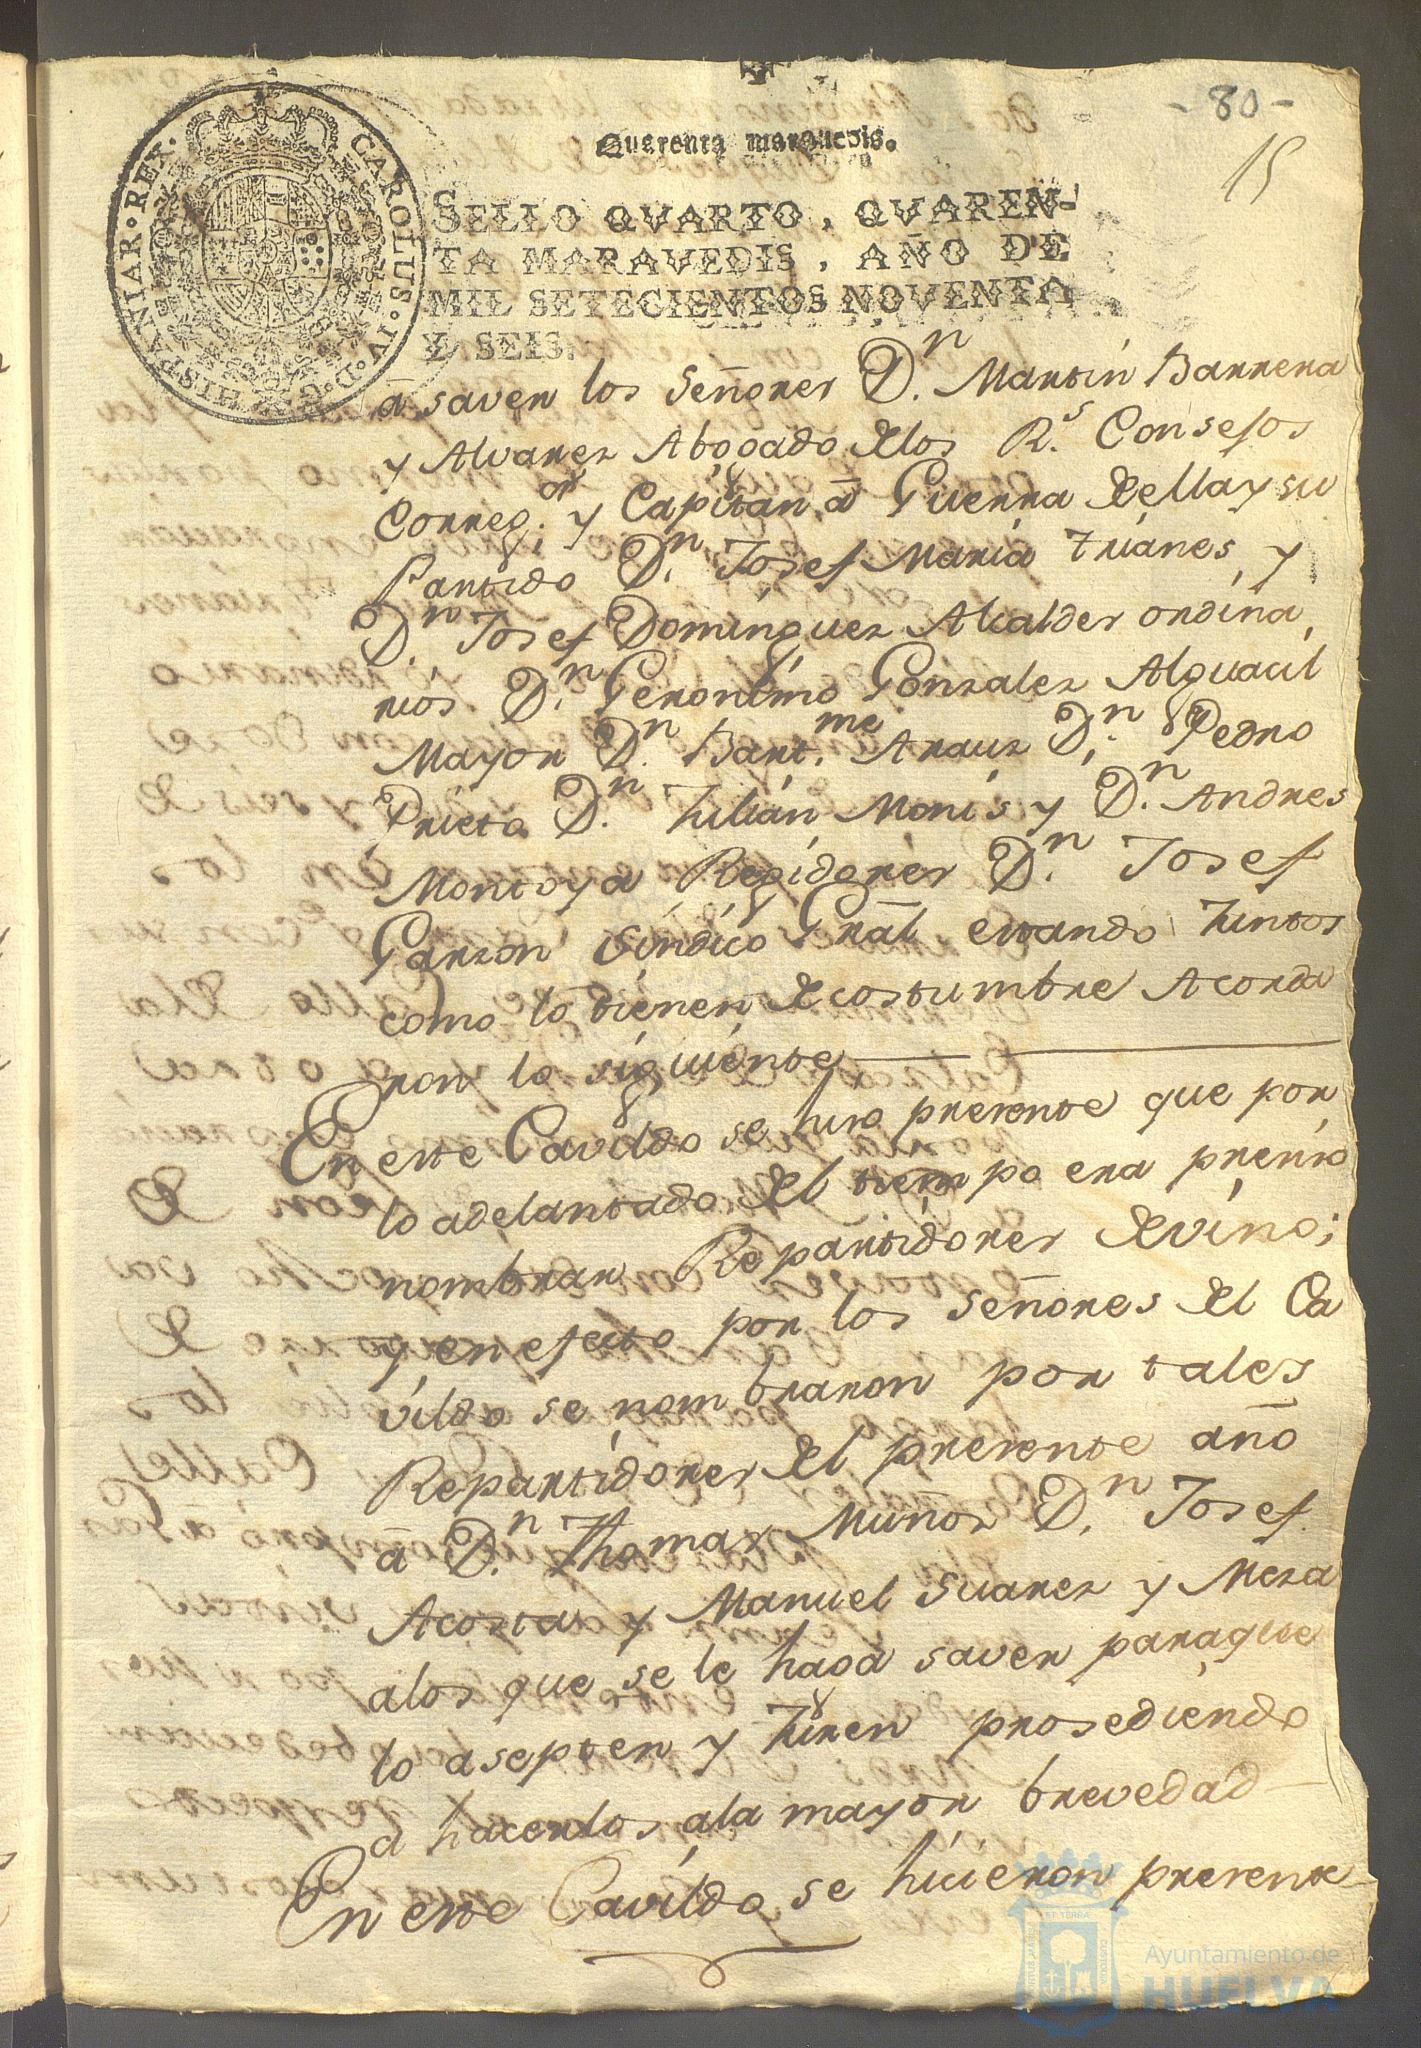 - 80 -
15
Quarenta maravedis.
SELLO QVARTO, QVAREN-
TA MARAVEDIS, AÑO DE
MIL SETECIENTOS NOVENTA
Y SEIS.
CAROLUS · IV · D · G · HISPANIAR · REX ·
â saver los Señores D.n Martin Barrera
y Alvarez Abogado delos R.s Consejos
Correg.or y Capitan â Guerra de ella y su
Partido D.n Josef Maria Trianes, y
D.n Josef Dominguez Alcaldes ordina
rios D.n Geronimo Gonzalez Alguacil
Mayor D.n Bart.me Arauz D.n Pedro
Prieto D.n Julian Monis y D.n Andres
Montoya Regidores D.n Josef
Garzon Sindico Gral estando Juntos
como lo tienen de costumbre Acorda
ron lo siguiente
En este Cavildo se hizo presente que por
lo adelantado del tiempo era presiso
nombrar Repartidores de vino;
y en efecto por los Señores del Ca
vildo se nombraron por tales
Repartidores del presente año
â D.n Thomas Muñoz D.n Josef
Acosta y Manuel Suarez y Meza
alos que se le haga saver paraque
lo asepten y Juren prosediendo
a hacerlos ala mayor brevedad
En este Cavildo se hicieron presente
Ayuntamiento de
HUELVA